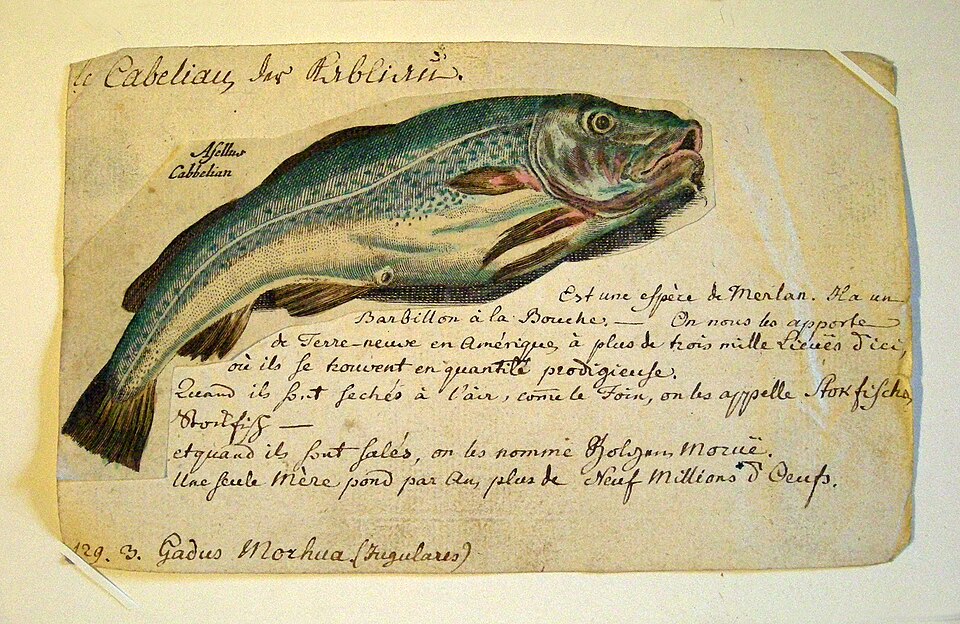 le Cabeliau, der Kabliau.
Asellus
Cabbelian
Est une espèce de Merlan. Il a un
Barbillon à la Bouche. — On nous les apporte
de Terre-neuve en Amérique, à plus de trois mille Lieues d'ici,
où ils se trouvent en quantité prodigieuse.
Quand ils sont sechés à l'air, come le Foin, on les appelle Stokfische,
Stockfisch —
et quand ils sont salés, on les nomme Bolchen, Moruë.
Une seule Mère pond par An, plus de Neuf Millions d'Oeufs.
129. 3. Gadus Morhua (Jugulares)